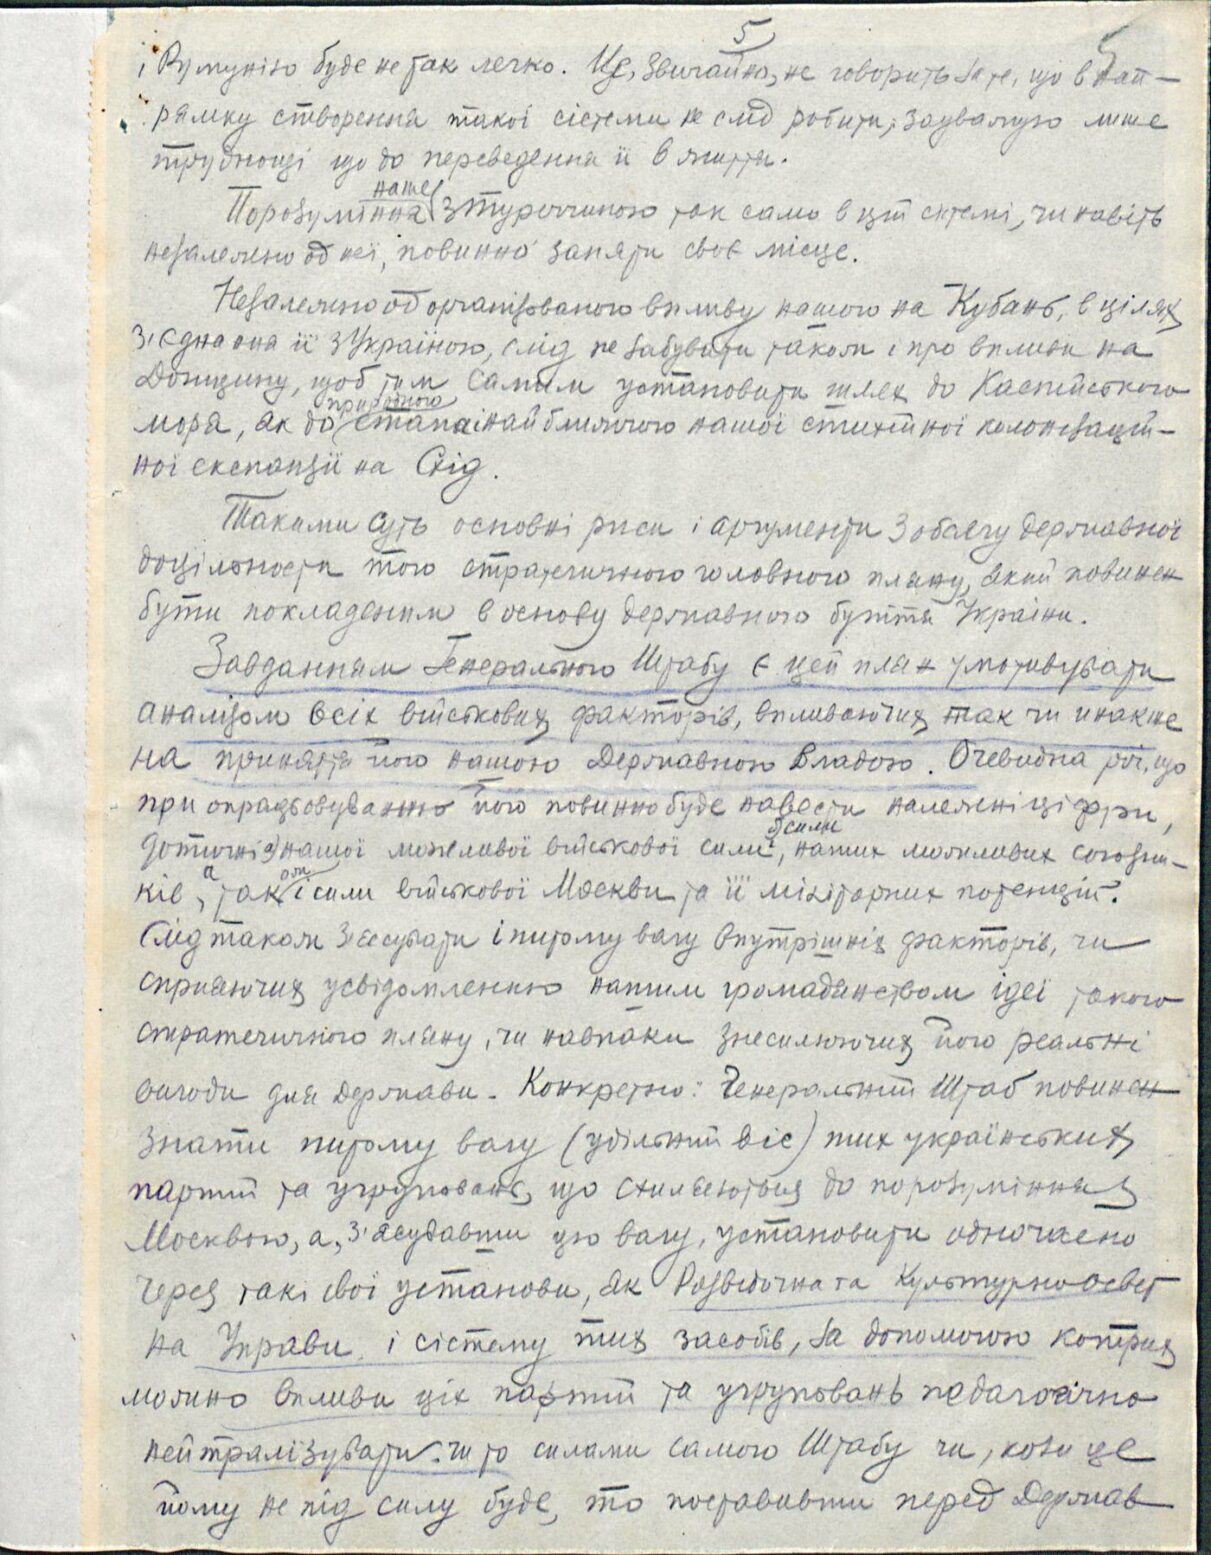 5
і Румунією буде не так легко. Це, звичайно, не говорить за те, що в нап-
рямку створення такої сістеми не слід робити; зауважую лише
труднощі що до переведення її в життя.
Порозуміння наше з Туреччиною так само в цій сістемі, чи навіть
незалежно од неї, повинно заняти своє місце.
Незалежно од організованого впливу нашого на Кубань, в цілях
з'єднання її з Україною, слід не забувати також і про вплив на
Донщину, щоб тим самим установити шлях до Каспійського
моря, як до природного етапа і найближчого нашої стихійної колонізацій-
ної експанзії на Схід.
Такими суть основні риси і аргументи з обсягу державної
доцільности того стратегичного головного пляну, який повинен
бути покладеним в основу державного буття України.
Завданням Генерального Штабу є цей плян умотивувати
аналізом всіх військових факторів, впливаючих так чи инакше
на принаття його нашою Державною Владою. Очевидна річ, що
при опрацьовуванню його повинно буде навести належні ціфри,
дотичні нашої можливої військової сили, сили наших можливих союзни-
ків, а також і сили військової Москви та її мілітарних потенцій.
Слід також з'ясувати і питому вагу внутрішніх факторів, чи
сприяючих усвідомленню нашим громадянством ідеї такого
стратегичного пляну, чи навпаки знесилюючих його реальні
вигоди для Держави. Конкретно: Генеральний Штаб повинен
знати питому вагу (удільний вiс) тих українських
партій та угруповань, що схиляються до порозуміння з
Москвою, а, з'ясувавши цю вагу, установити одночасно
через такі свої установи, як Розвідочна та Культурно освіт
на Управи, і сістему тих засобів, за допомогою котрих
можно впливи ціх партій та угруповань педагогічно
нейтралізувати. чи то силами самого Штабу чи, коли це
йому не під силу буде, то поставивши перед Держав